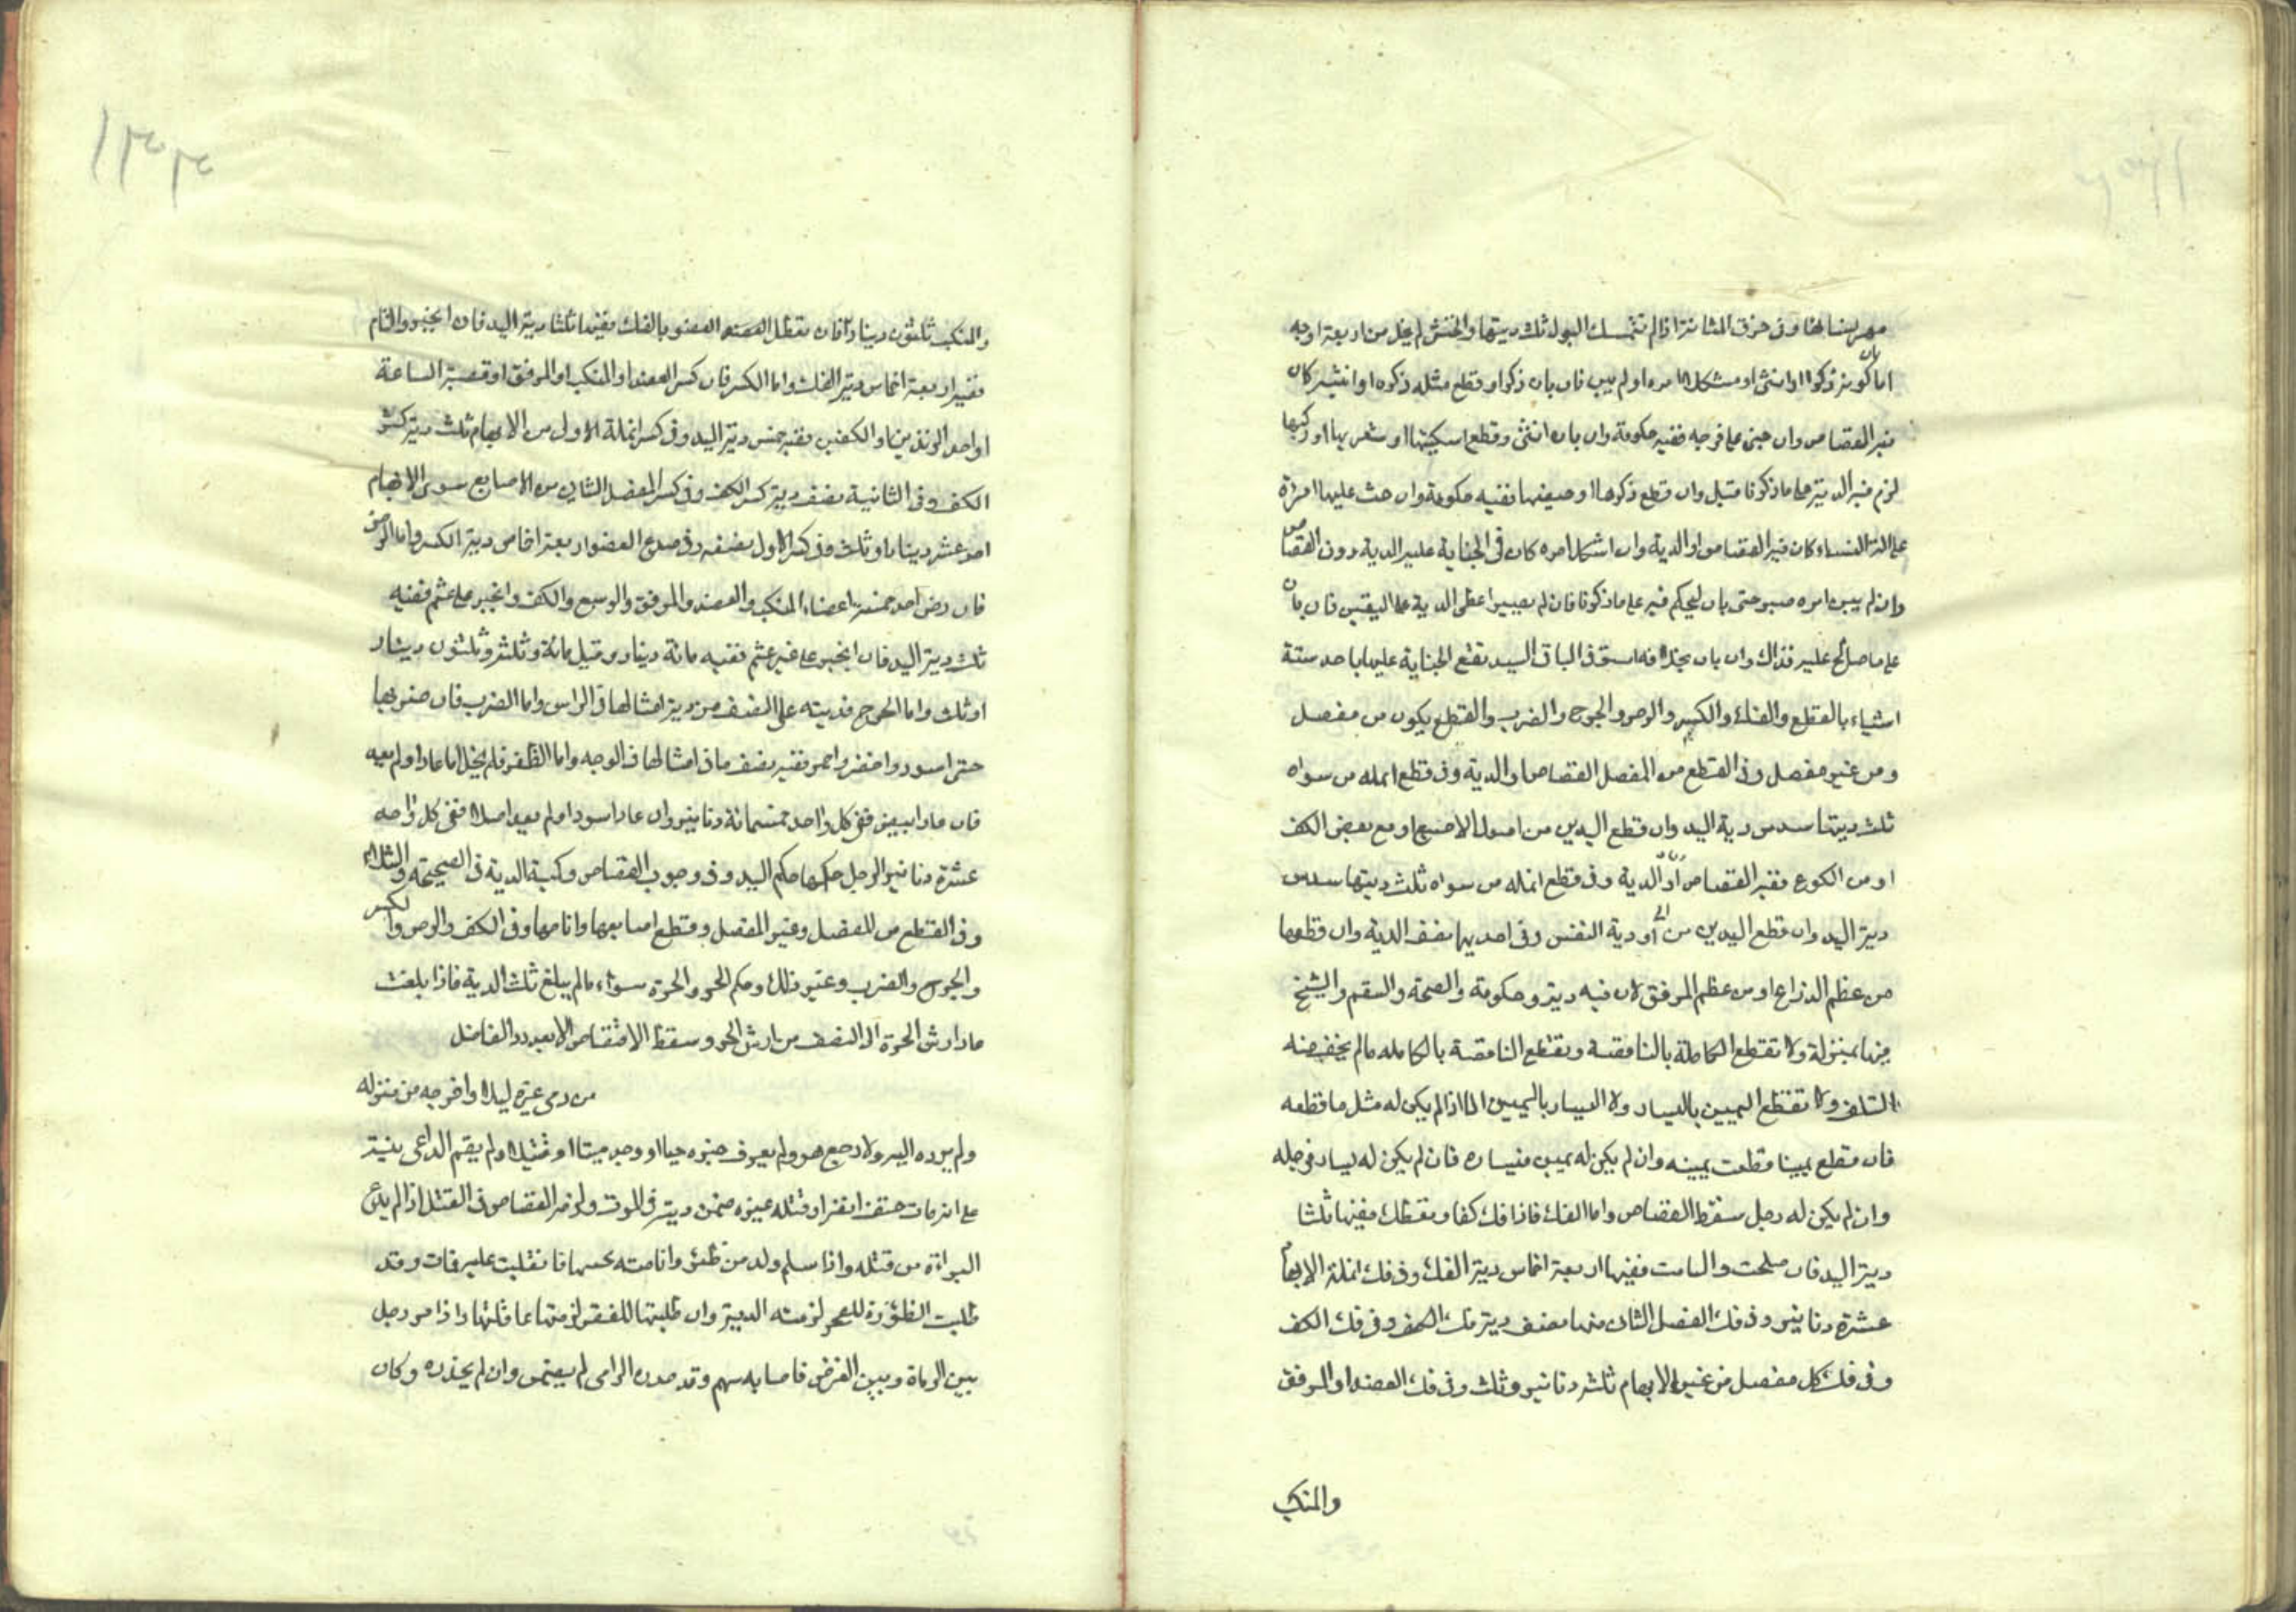 مهر نسائها وفى خرق المثانة اذا لم تتمسك البول ثلث ديتها والخنثى لم يخل من اربعة اوجه
اما بان كونه ذكرا او انثى او مشكلا امره او لم يبن فان بان ذكرا وقطع مثله ذكره او انثييه كان
فيه القصاص وان جنى على فرجه ففيه حكومة وان بان انثى وقطع اسكيتها او شفريها او ركبها
لزم فيه الدية على ما ذكرنا قبل وان قطع ذكرها او خصيتها ففيه حكومة وان جنت عليها امراة
على النساء كان فيه القصاص او الدية وان اشكل امره كان فى الجناية عليه الدية دون القصاص
وان لم يبن امره صبر حتى بان ليحكم فيه على ما ذكرنا فان لم يصبر اعطى الدية على اليقين فان بان
على ما صالح عليه فذاك وان بان بخلافه استوفى الباقى اليد تقع الجناية عليها باحد ستة
اشياء بالقطع والفك والكسر والرض والجرح والضرب والقطع يكون من مفصل
ومن غير مفصل وفى القطع من المفصل القصاص او الدية وفى قطع انمله من سواه
ثلث ديتها سدس دية اليد وان قطع اليدين من اصول الاصابع او مع بعض الكف
او من الكوع ففيه القصاص او الدية وفى قطع انمله من سواه ثلث ديتها سدس
دية اليد وان قطع اليدين من او دية النفس وفى احديهما نصف الدية وان قطعها
من عظم الذراع او من عظم المرفق كان فيه دية وحكومة والصحة والسقم والشيخ
فيها بمنزلة ولا تقطع الكاملة بالناقصة وتقطع الناقصة بالكامله ما لم يخف منه
التلف ولا تقطع اليمين باليسار ولا اليسار باليمين الا اذا لم يكن له مثل ما قطعه
فان قطع يمينا قطعت يمينه وان لم يكن له يمين فيساره فان لم يكن له يسار فرجله
وان لم يكن له رجل سقط القصاص واما الفك فاذا فك كفا وتعطلت ففيها ثلثا
دية اليد فان صلحت والتامت ففيها اربعة اخماس دية الفك وفى فك انملة الابهام
عشرة دنانير وفى فك المفصل الثانى منها نصف دية فك الكف وفى فك الكف
وفى فك كل مفصل من غير الابهام ثلثة دنانير وثلث وفى فك العضد او المرفق
والمنكب
والمنكب ثلثون دينارا فان تعطل العضو بالفك ففيه ثلثا دية اليد فان انجبر والتام
ففيه اربعة اخماس دية الفك واما الكسر فان كسر العضد او المنكب او المرفق او قصبة الساعد
او احد الزندين او الكفين ففيه خمس دية اليد وفى كسر انملة الاول من الابهام ثلث دية كسر
الكف وفى الثانية نصف دية كسر الكف وفى كسر المفصل الثانى من الاصابع سوى الابهام
احد عشر دينارا وثلث وفى كسر الاول نصفه وفى صدع العضو اربعة اخماس دية الكسر واما الرض
فان رض احد خمسة اعضاء المنكب والعضد والمرفق والرسغ والكف وانجبر على عثم ففيه
ثلث دية اليد فان انجبر على غير عثم ففيه مائة دينار وقيل مائة وثلثة وثلثون دينار
او ثلث واما الجرح فديته على النصف من دية امثالها فى الراس واما الضرب فان ضربها
حتى اسود واخضر واحمر ففيه نصف ما فى امثالها فى الوجه واما الظفر فلم يخل اما عاد او لم يعد
فان عاد ابيض ففى كل واحد خمسة دنانير وان عاد اسود او لم يعد اصلا ففى كل واحد
عشرة دنانير الرجل حكمها حكم اليد وفى وجوب القصاص وكمية الدية فى الصحيحة والشلاء
وفى القطع من المفصل وغير المفصل وقطع اصابعها واناملها وفى الكف والرض والكسر
والجرح والضرب وغير ذلك وحكم الحر والحرة سواء ما لم يبلغ ثلث الدية فاذا بلغت
عاد ارش الحرة الى النصف من ارش الحر وسقط الاقتصاص الا بعد رد الفاضل
من دعى غيره ليلا واخرجه من منزله
ولم يرده اليه ولا رجع هو ولم يعرف خبره حيا او وجد ميتا او قتيلا ولم يقم الداعى بينة
على انه مات حتف انفه او قتله غيره ضمن ديته فى الموت ولزمه القصاص فى القتل اذا لم يدع
البراءة من قتله واذا سلم ولد من ظئر وانامته بجنبها فانقلبت عليه فمات وقد
طلبت الظؤرة للفخر لزمته الدية وان طلبتها للفقر لزمتها عاقلتها واذا مر رجل
بين الرماة وبين الغرض فاصابه سهم وقد حذره الرامى لم يضمن وان لم يحذره وكان